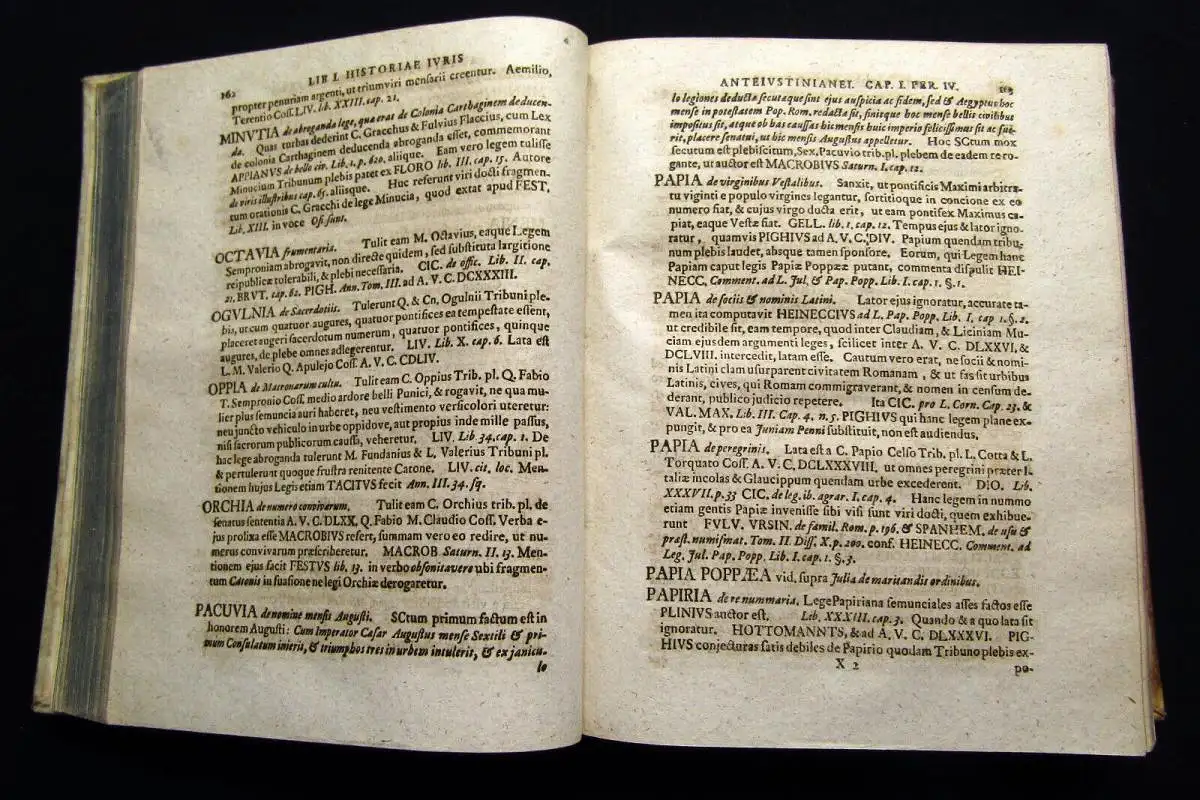 162
LIB I. HISTORIAE IVRIS
propter penuriam argenti, ut triumviri mensarii creentur. Aemilio,
Terentio Coss. LIV. lib. XXIII. cap. 21.
MINUTIA de abroganda lege, quæ erat de Colonia Carthaginem deducen-
da. Quas turbas dederint C. Gracchus & Fulvius Flaccius, cum Lex
de colonia Carthaginem deducenda abroganda esset, commemorant
APPIANVS de bello civ. Lib. 1. p. 620. aliique. Eam vero legem tulisse
Minucium Tribunum plebis patet ex FLORO lib. III. cap. 15. Autore
de viris illustribus cap. 65. aliisque. Huc referunt viri docti fragmen-
tum orationis C. Gracchi de lege Minucia, quod extat apud FEST.
Lib. XIII. in voce Osi sunt.
OCTAVIA frumentaria. Tulit eam M. Octavius, eaque Legem
Semproniam abrogavit, non directe quidem, sed substituta largitione
reipublicæ tolerabili, & plebi necessaria. CIC. de offic. Lib. II. cap.
21. BRVT. cap. 62. PIGH. Ann. Tom. III. ad A. V. C. DCXXXIII.
OGVLNIA de Sacerdotiis. Tulerunt Q. & Cn, Ogulnii Tribuni ple-
bis, ut cum quatuor augures, quatuor pontifices ea tempestate essent,
placeret augeri sacerdotum numerum, quatuor pontifices, quinque
augures, de plebe omnes adlegerentur. LIV. Lib. X. cap. 6. Lata est
L. M. Valerio Q. Apulejo Coss. A. V. C. CDLIV.
OPPIA de Matronarum cultu. Tulit eam C. Oppius Trib. pl. Q. Fabio
T. Sempronio Coss. medio ardore belli Punici, & rogavit, ne qua mu-
lier plus semuncia auri haberet, neu vestimento versicolori uteretur:
neu juncto vehiculo in urbe oppidove, aut propius inde mille passus,
nisi sacrorum publicorum caussa, veheretur. LIV. Lib 34. cap. 1. De
hac lege abroganda tulerunt M. Fundanius & L. Valerius Tribuni pl.
& pertulerunt quoque frustra renitente Catone. LIV. cit. loc. Men-
tionem hujus Legis etiam TACITVS fecit Ann. III. 34. sq.
ORCHIA de numero convivarum. Tulit eam C. Orchius trib. pl. de
senatus sententia A. V. C. DLXX. Q. Fabio M. Claudio Coss. Verba e-
jus prolixa esse MACROBIVS refert, summam vero eo redire, ut nu-
merus convivarum præscriberetur. MACROB Saturn. II. 13. Men-
tionem ejus facit FESTVS lib. 13. in verbo obsonitavere ubi fragmen-
tum Catonis in suasione ne legi Orchiæ derogaretur.
PACUVIA de nomine mensis Augusti. SCtum primum factum est in
honorem Augusti: Cum Imperator Cæsar Augustus mense Sextili & pri-
mum Consulatum inierit, & triumphos tres in urbem intulerit, & ex janicu-
lo
ANTEIVSTINIANEI. CAP. I. PER. IV.
lo legiones deductæ secutaque sint ejus auspicia ac fidem, sed & Aegyptus hoc
mense in potestatem Pop. Rom. redacta sit, finisque hoc mense bellis civilibus
impositus sit, atque ob has caussas hic mensis huic imperio felicissimus sit ac fue-
rit, placere senatui, ut hic mensis Augustus appelletur. Hoc SCtum mox
secutum est plebiscitum, Sex. Pacuvio trib. pl. plebem de eadem re ro-
gante, ut auctor est MACROBIUS Saturn. I. cap. 12.
PAPIA de virginibus Vestalibus. Sanxit, ut pontificis Maximi arbitra-
tu viginti e populo virgines legantur, sortitioque in concione ex eo
numero fiat, & cujus virgo ducta erit, ut eam pontifex Maximus ca-
piat, eaque Vestæ fiat. GELL. lib. 1. cap. 12. Tempus ejus & lator igno-
ratur, quamvis PIGHIVS ad A. V. C. DIV. Papium quendam tribu-
num plebis laudet, absque tamen sponsore. Eorum, qui Legem hanc
Papiam caput legis Papiæ Poppææ putant, commenta dispulit HEI-
NECC. Comment. ad L. Jul. & Pap. Popp. Lib. I. cap. 1. §. 1.
PAPIA de sociis & nominis Latini. Lator ejus ignoratur, accurate ta-
men ita computavit HEINECCIVS ad L. Pap. Popp. Lib. I, cap 1. §. 2.
ut credibile sit, eam tempore, quod inter Claudiam, & Liciniam Mu-
ciam ejusdem argumenti leges, scilicet inter A. V. C. DLXXVI. &
DCLVIII. intercedit, latam esse. Cautum vero erat, ne socii & nomi-
nis Latini clam usurparent civitatem Romanam, & ut fas sit urbibus
Latinis, cives, qui Romam commigraverant, & nomen in censum de-
derant, publico judicio repetere. Ita CIC. pro L. Corn. Cap. 23. &
VAL. MAX. Lib. III. Cap. 4. n. 5. PIGHIVS qui hanc legem plane ex-
pungit, & pro ea Juniam Penni substituit, non est audiendus.
PAPIA de peregrinis. Lata est a C. Papio Celso Trib. pl. L. Cotta & L.
Torquato Coss. A. V. C. DCLXXXVIII. ut omnes peregrini præter I-
taliæ incolas & Glaucippum quendam urbe excederent. DIO. Lib.
XXXVII. p. 33 CIC. de leg. ib. agrar. I. cap. 4. Hanc legem in nummo
etiam gentis Papiæ invenisse sibi visi sunt viri docti, quem exhibue-
runt FVLV. VRSIN. de famil. Rom. p. 196. & SPANHEM. de usu &
præst. numismat. Tom. II. Diss. X. p. 200. conf. HEINECC. Comment. ad
Leg. Jul. Pap. Popp. Lib. I. cap. 1. §. 3.
PAPIA POPPÆA vid. supra Julia de maritandis ordinibus.
PAPIRIA de re nummaria. Lege Papiriana semunciales asses factos esse
PLINIVS auctor est. Lib. XXXIII. cap. 3. Quando & a quo lata sit
ignoratur. HOTTOMANNTS, & ad A. V. C. DLXXXVI. PIG-
HIVS conjecturas satis debiles de Papirio quodam Tribuno plebis ex-
X 2
po-